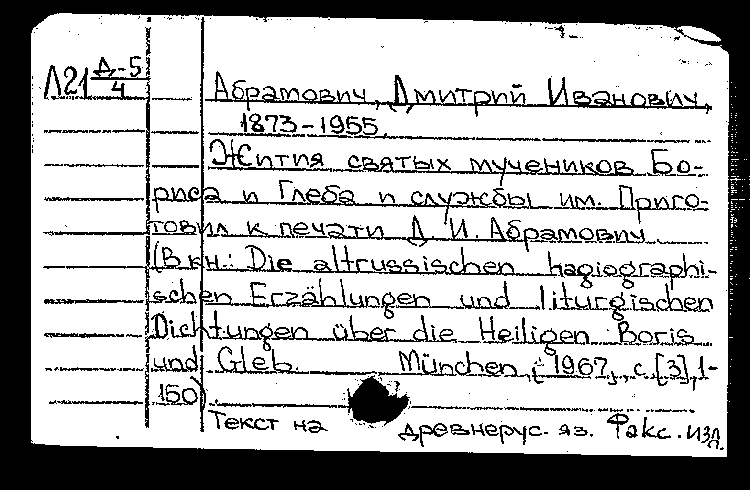 Л21 Д-5/4
Абрамович, Дмитрий Иванович,
1873-1955.
Жития святых мучеников Бо-
риса и Глеба и службы им. Приго-
товил к печати Д. И. Абрамович.
(В кн.: Die altrussischen hagiographi-
schen Erzählungen und liturgischen
Dichtungen über die Heiligen Boris
und Gleb. München, 1967, с. [3], 1-
150).
Текст на древнерус. яз. Факс. изд.